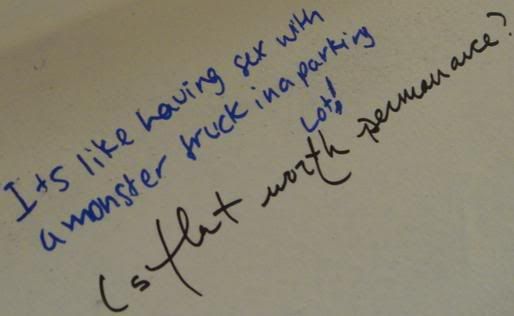 Its like having sex with
a monster truck in a parking
Lots!
Is that worth permanance?